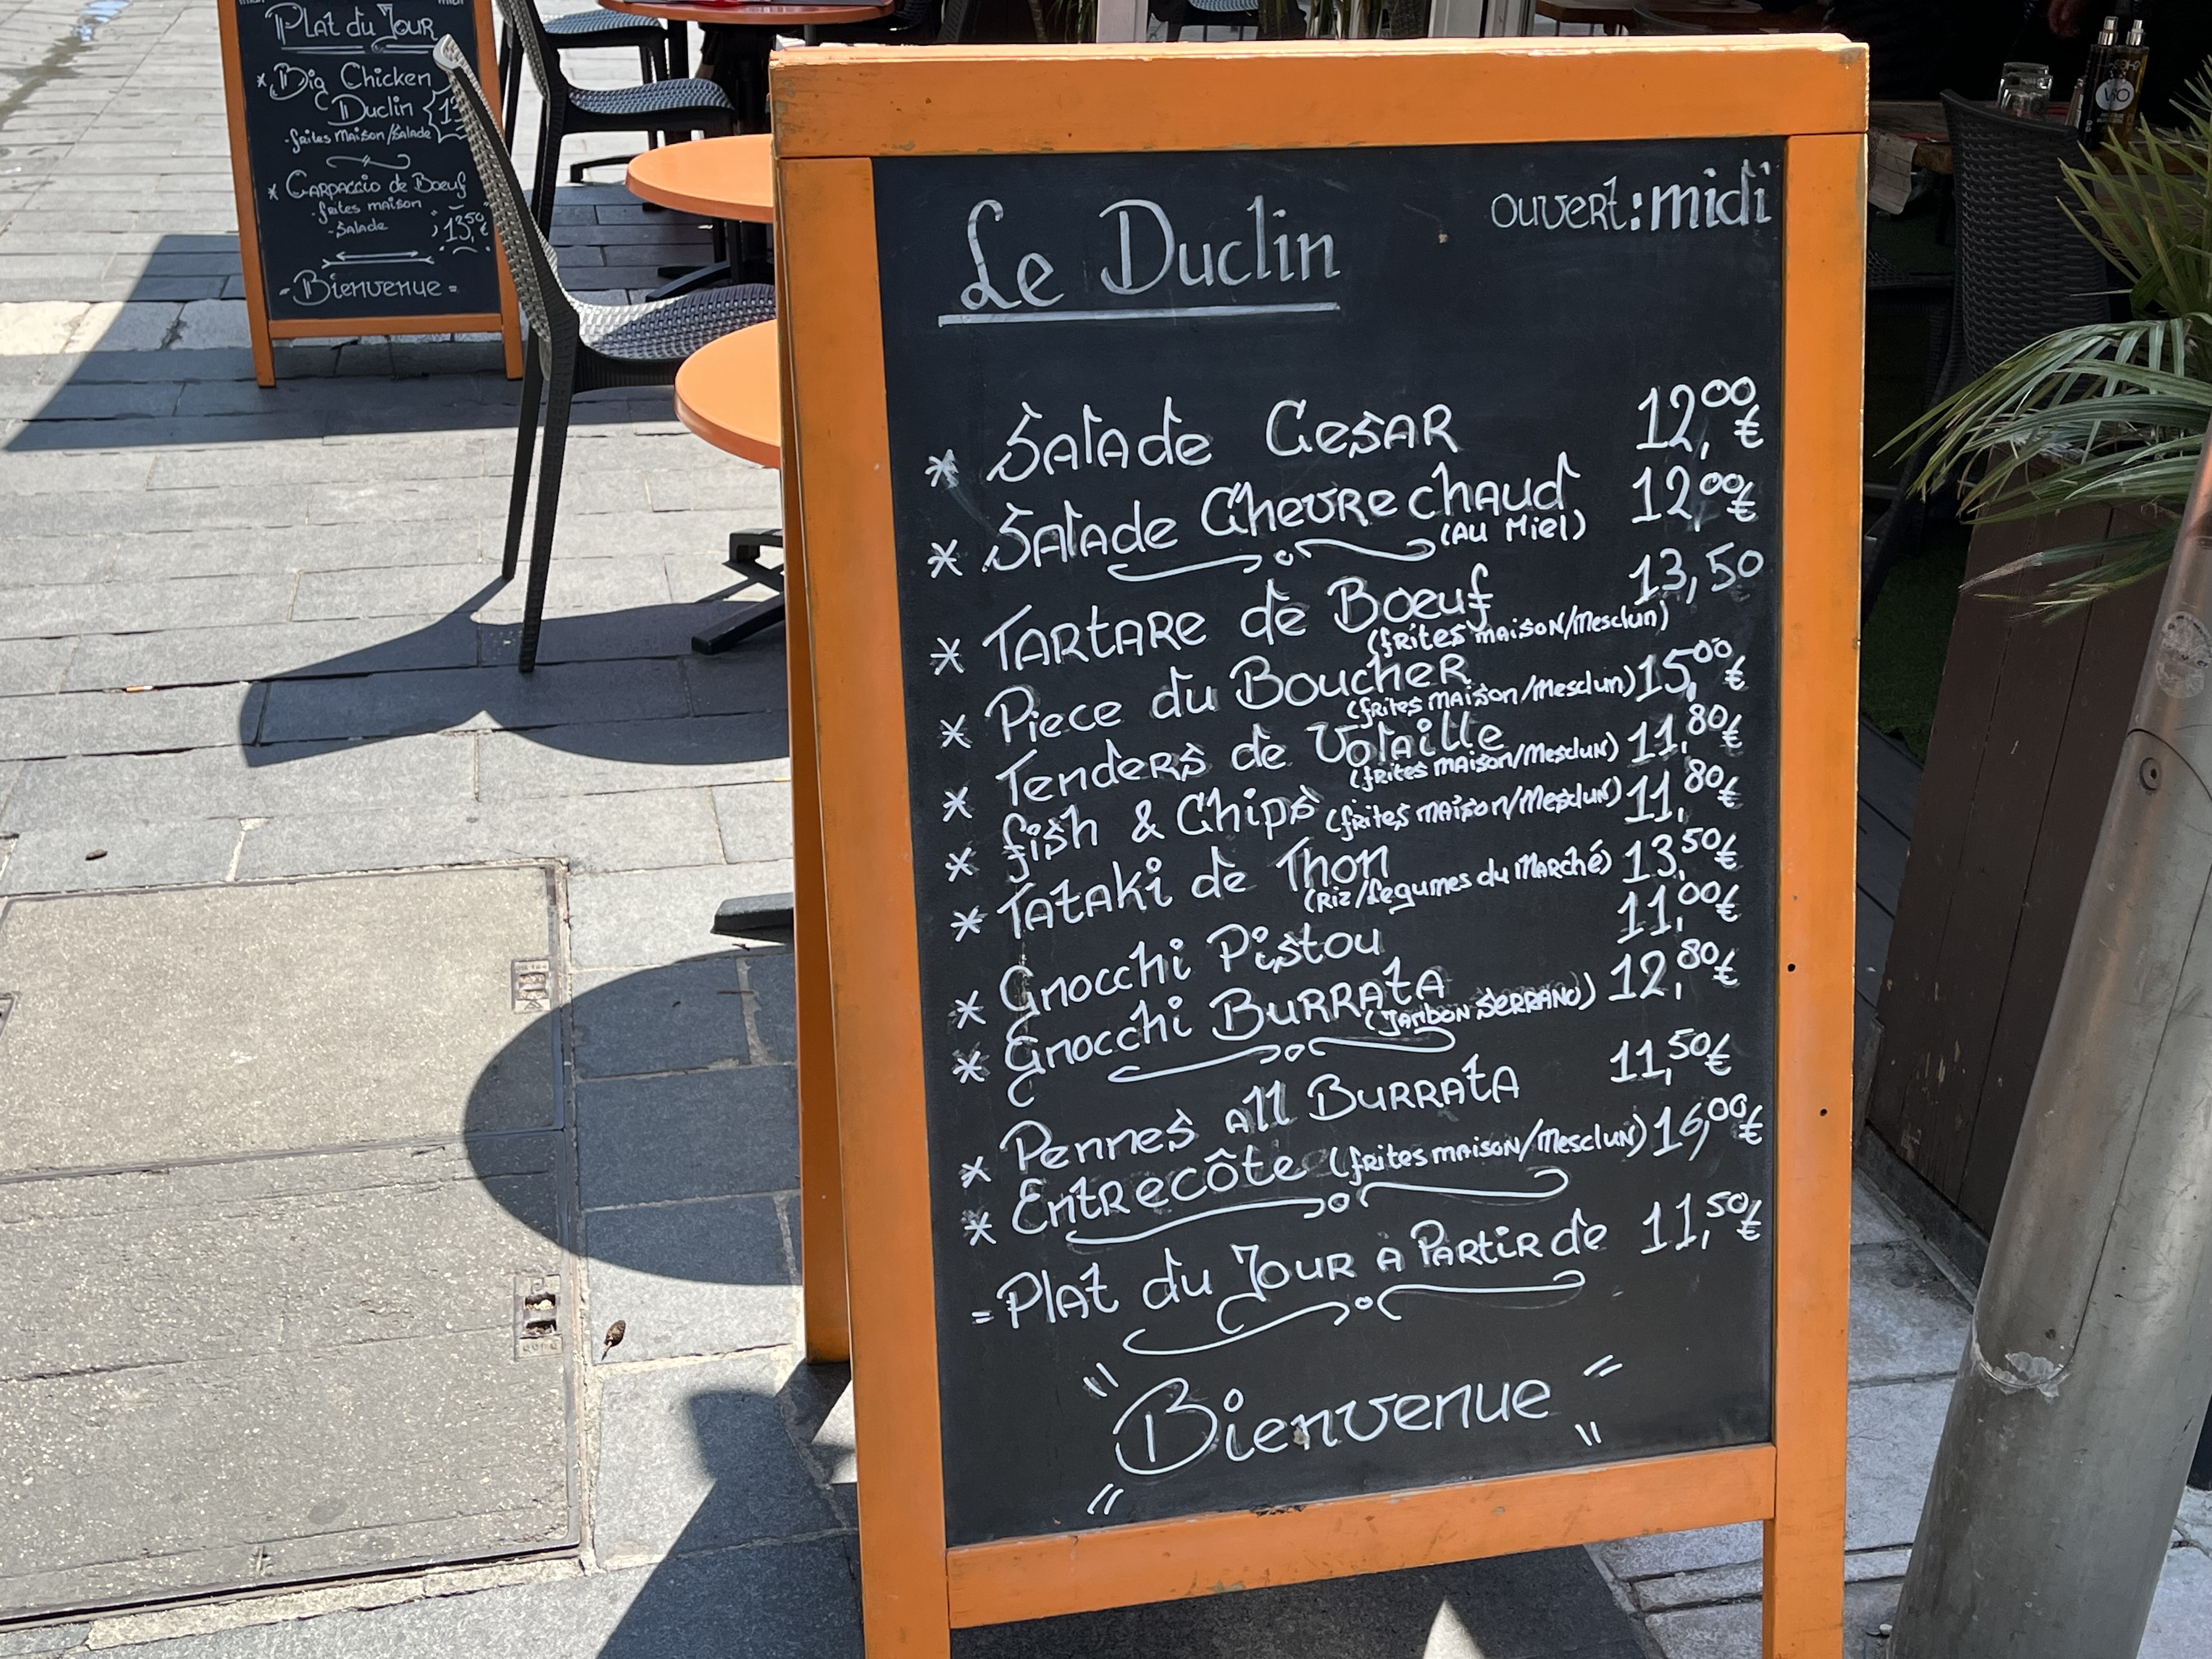 Plat du Jour
* Big Chicken
Duclin
- frites maison/salade
* Carpaccio de Boeuf
- frites maison
- Salade
13,50€
- Bienvenue =
Le Duclin
ouvert: midi
* Salade Cesar 12,00€
* Salade Chevre chaud 12,00€
(Au Miel)
* Tartare de Boeuf 13,50
(frites maison/Mesclun)
* Piece du Boucher
(frites maison/Mesclun) 15,00€
* Tenders de Volaille
(frites maison/Mesclun) 11,80€
* fish & Chips (frites maison/Mesclun) 11,80€
* Tataki de Thon
(Riz/Legumes du Marché) 13,50€
* Gnocchi Pistou 11,00€
* Gnocchi Burrata
(Jambon Serrano) 12,80€
* Pennes all Burrata 11,50€
* Entrecôte (frites maison/Mesclun) 16,00€
= Plat du Jour a Partir de 11,50€
"Bienvenue"